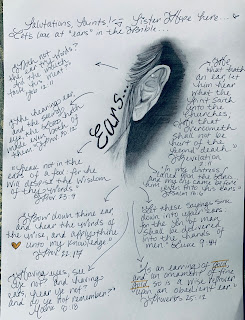 Salutations, Saints! Sister Hope here...
Let's look at "ears" in the Bible...
Doth not the
ear try words?
and the mouth
taste his meat
Job 12:11
The hearing ear,
and the seeing
eye, the LORD hath
made even both
of them.
Proverbs 20:12
Speak not in the
ears of a fool: for he
will despise the wisdom
of thy words.
Proverbs 23:9
Bow down thine ear
and hear the words of the
wise, and apply thine
heart unto my knowledge
Proverbs 22:17
Having eyes, see
ye not? and having
ears, hear ye not?
and do ye not remember?
Mark 8:18
Ears...
He
that hath
an ear, let
him hear
what the
Spirit saith
unto the
churches;
He that
overcometh
shall not be
hurt of the
second death.
Revelation
2:11
In my distress I
called upon the LORD,
and my cry came before him,
even into his ears.
Let these sayings sink
down into your ears:
for the Son of man
shall be delivered
into the hands of
men. Luke 9:44
As an earring of gold,
and an ornament of fine
gold, so is a wise reprover
upon an obedient ear.
Proverbs 25:12